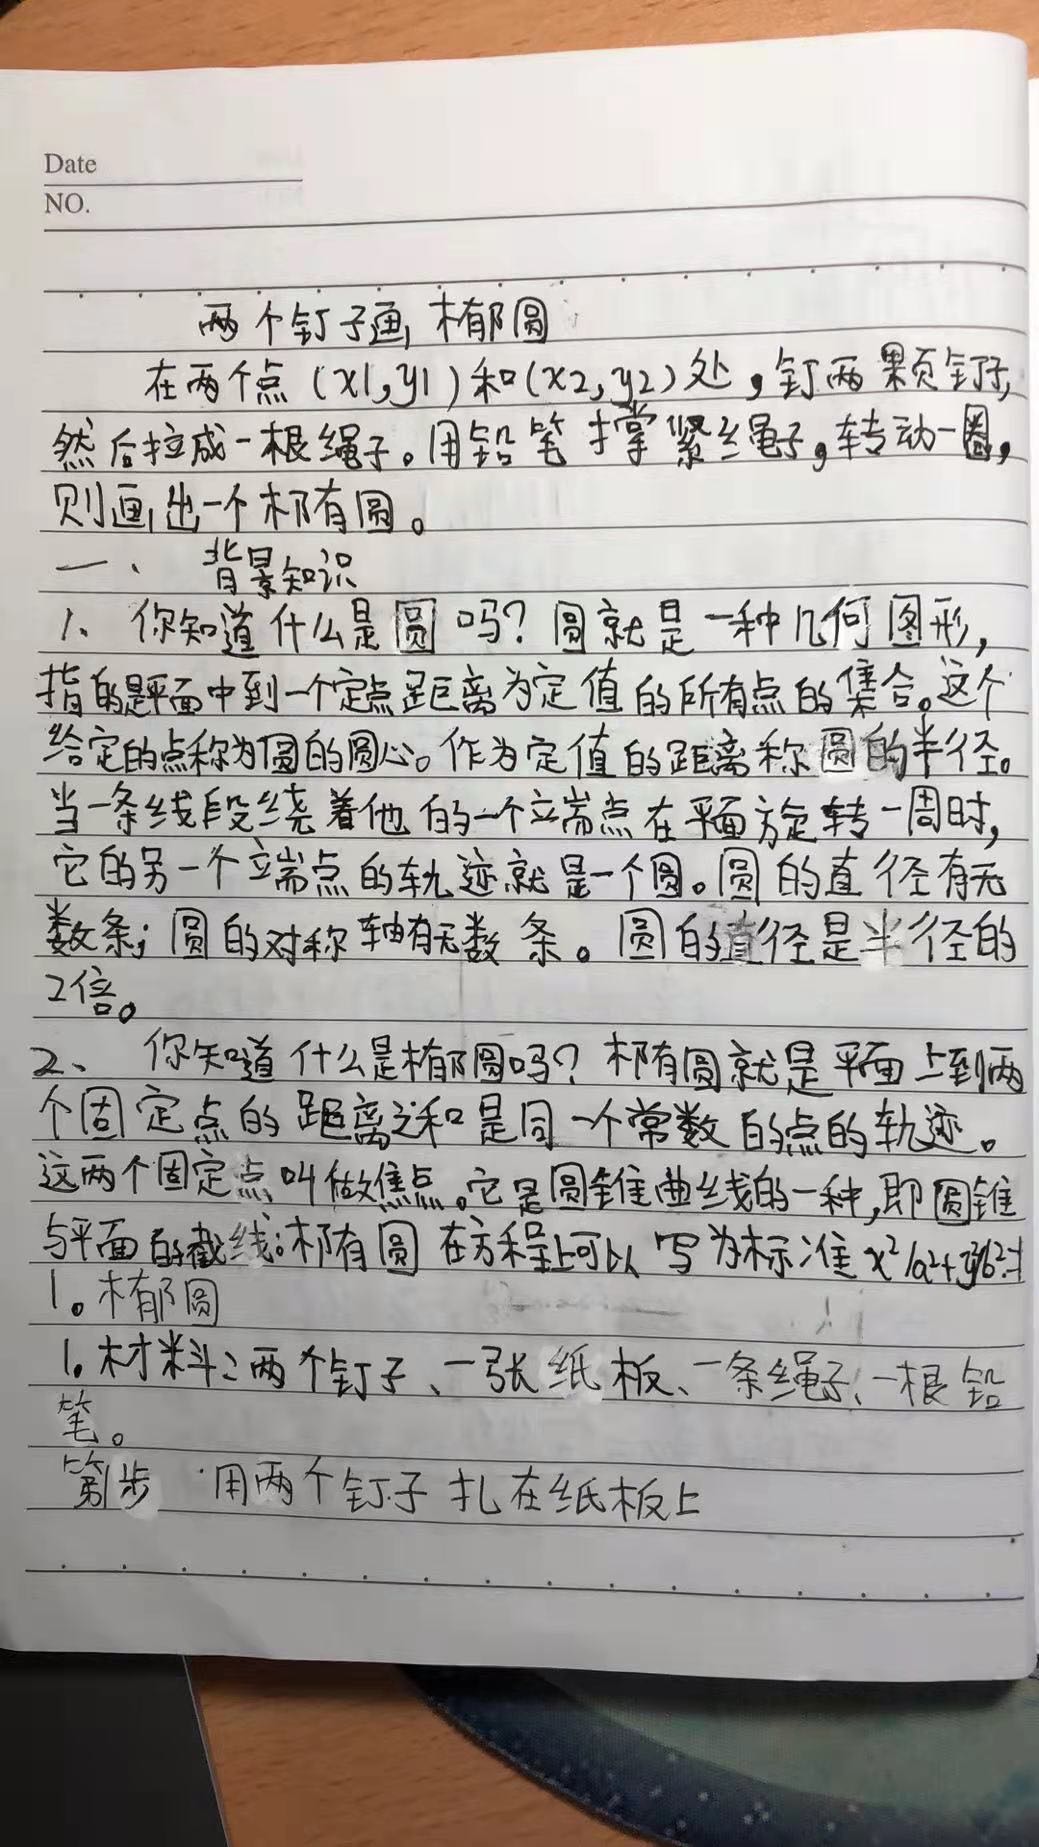 Date
NO.
两个钉子画椭圆
在两个点(x1,y1)和(x2,y2)处,钉两颗钉子,
然后拉成一根绳子。用铅笔撑紧绳子,转动一圈,
则画出一个椭圆。
一、背景知识
1、你知道什么是圆吗?圆就是一种几何图形,
指的是平面中到一个定点距离为定值的所有点的集合。这个
给定的点称为圆的圆心。作为定值的距离称圆的半径。
当一条线段绕着他的一个端点在平面旋转一周时,
它的另一个端点的轨迹就是一个圆。圆的直径有无
数条;圆的对称轴有无数条。圆的直径是半径的
2倍。
2、你知道什么是椭圆吗?椭圆就是平面上到两
个固定点的距离之和是同一个常数的点的轨迹。
这两个固定点叫做焦点。它是圆锥曲线的一种,即圆锥
与平面的截线。椭圆在方程上可以写为标准x²/a²+y²/b²=1
1。椭圆
1.材料:两个钉子、一张纸板、一条绳子、一根铅
笔。
第1步 用两个钉子扎在纸板上